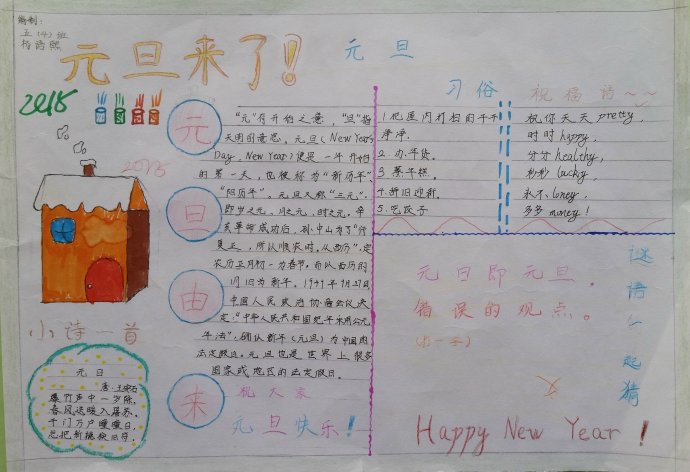 编制：
五（4）班
元旦来了！
元旦
2015
2015
元旦由来
"元"有开始之意，"旦"指
天明的意思。元旦（New Year's
Day，New Year）便是一年开始
的第一天，也被称为"新历年"，
"阳历年"。元旦又称"三元"，
即岁之元、月之元、时之元，辛
亥革命成功后，孙中山为了"行
夏正，所以顺农时，从西历"，定
农历正月初一为春节，而以西历的
1月1日为新年。1949年9月27日
中国人民政治协商会议决
定："中华人民共和国纪年采用公元
年法"，确认新年（元旦）为中国的
法定假日。元旦也是世界上很多
国家或地区的法定假日。
祝大家
元旦快乐！
习俗
1.把屋内打扫的干干
净净.
2.办年货.
3.蒸年糕.
4.辞旧迎新.
5.吃饺子
祝福语～～
祝你天天pretty，
时时happy，
分分healthy，
秒秒lucky，
永不loney，
多多money！
谜语一起猜
元日即元旦。
错误的观点。
（打一字）
Happy New Year！
小诗一首
元日
唐.王安石
爆竹声中一岁除，
春风送暖入屠苏。
千门万户曈曈日，
总把新桃换旧符。